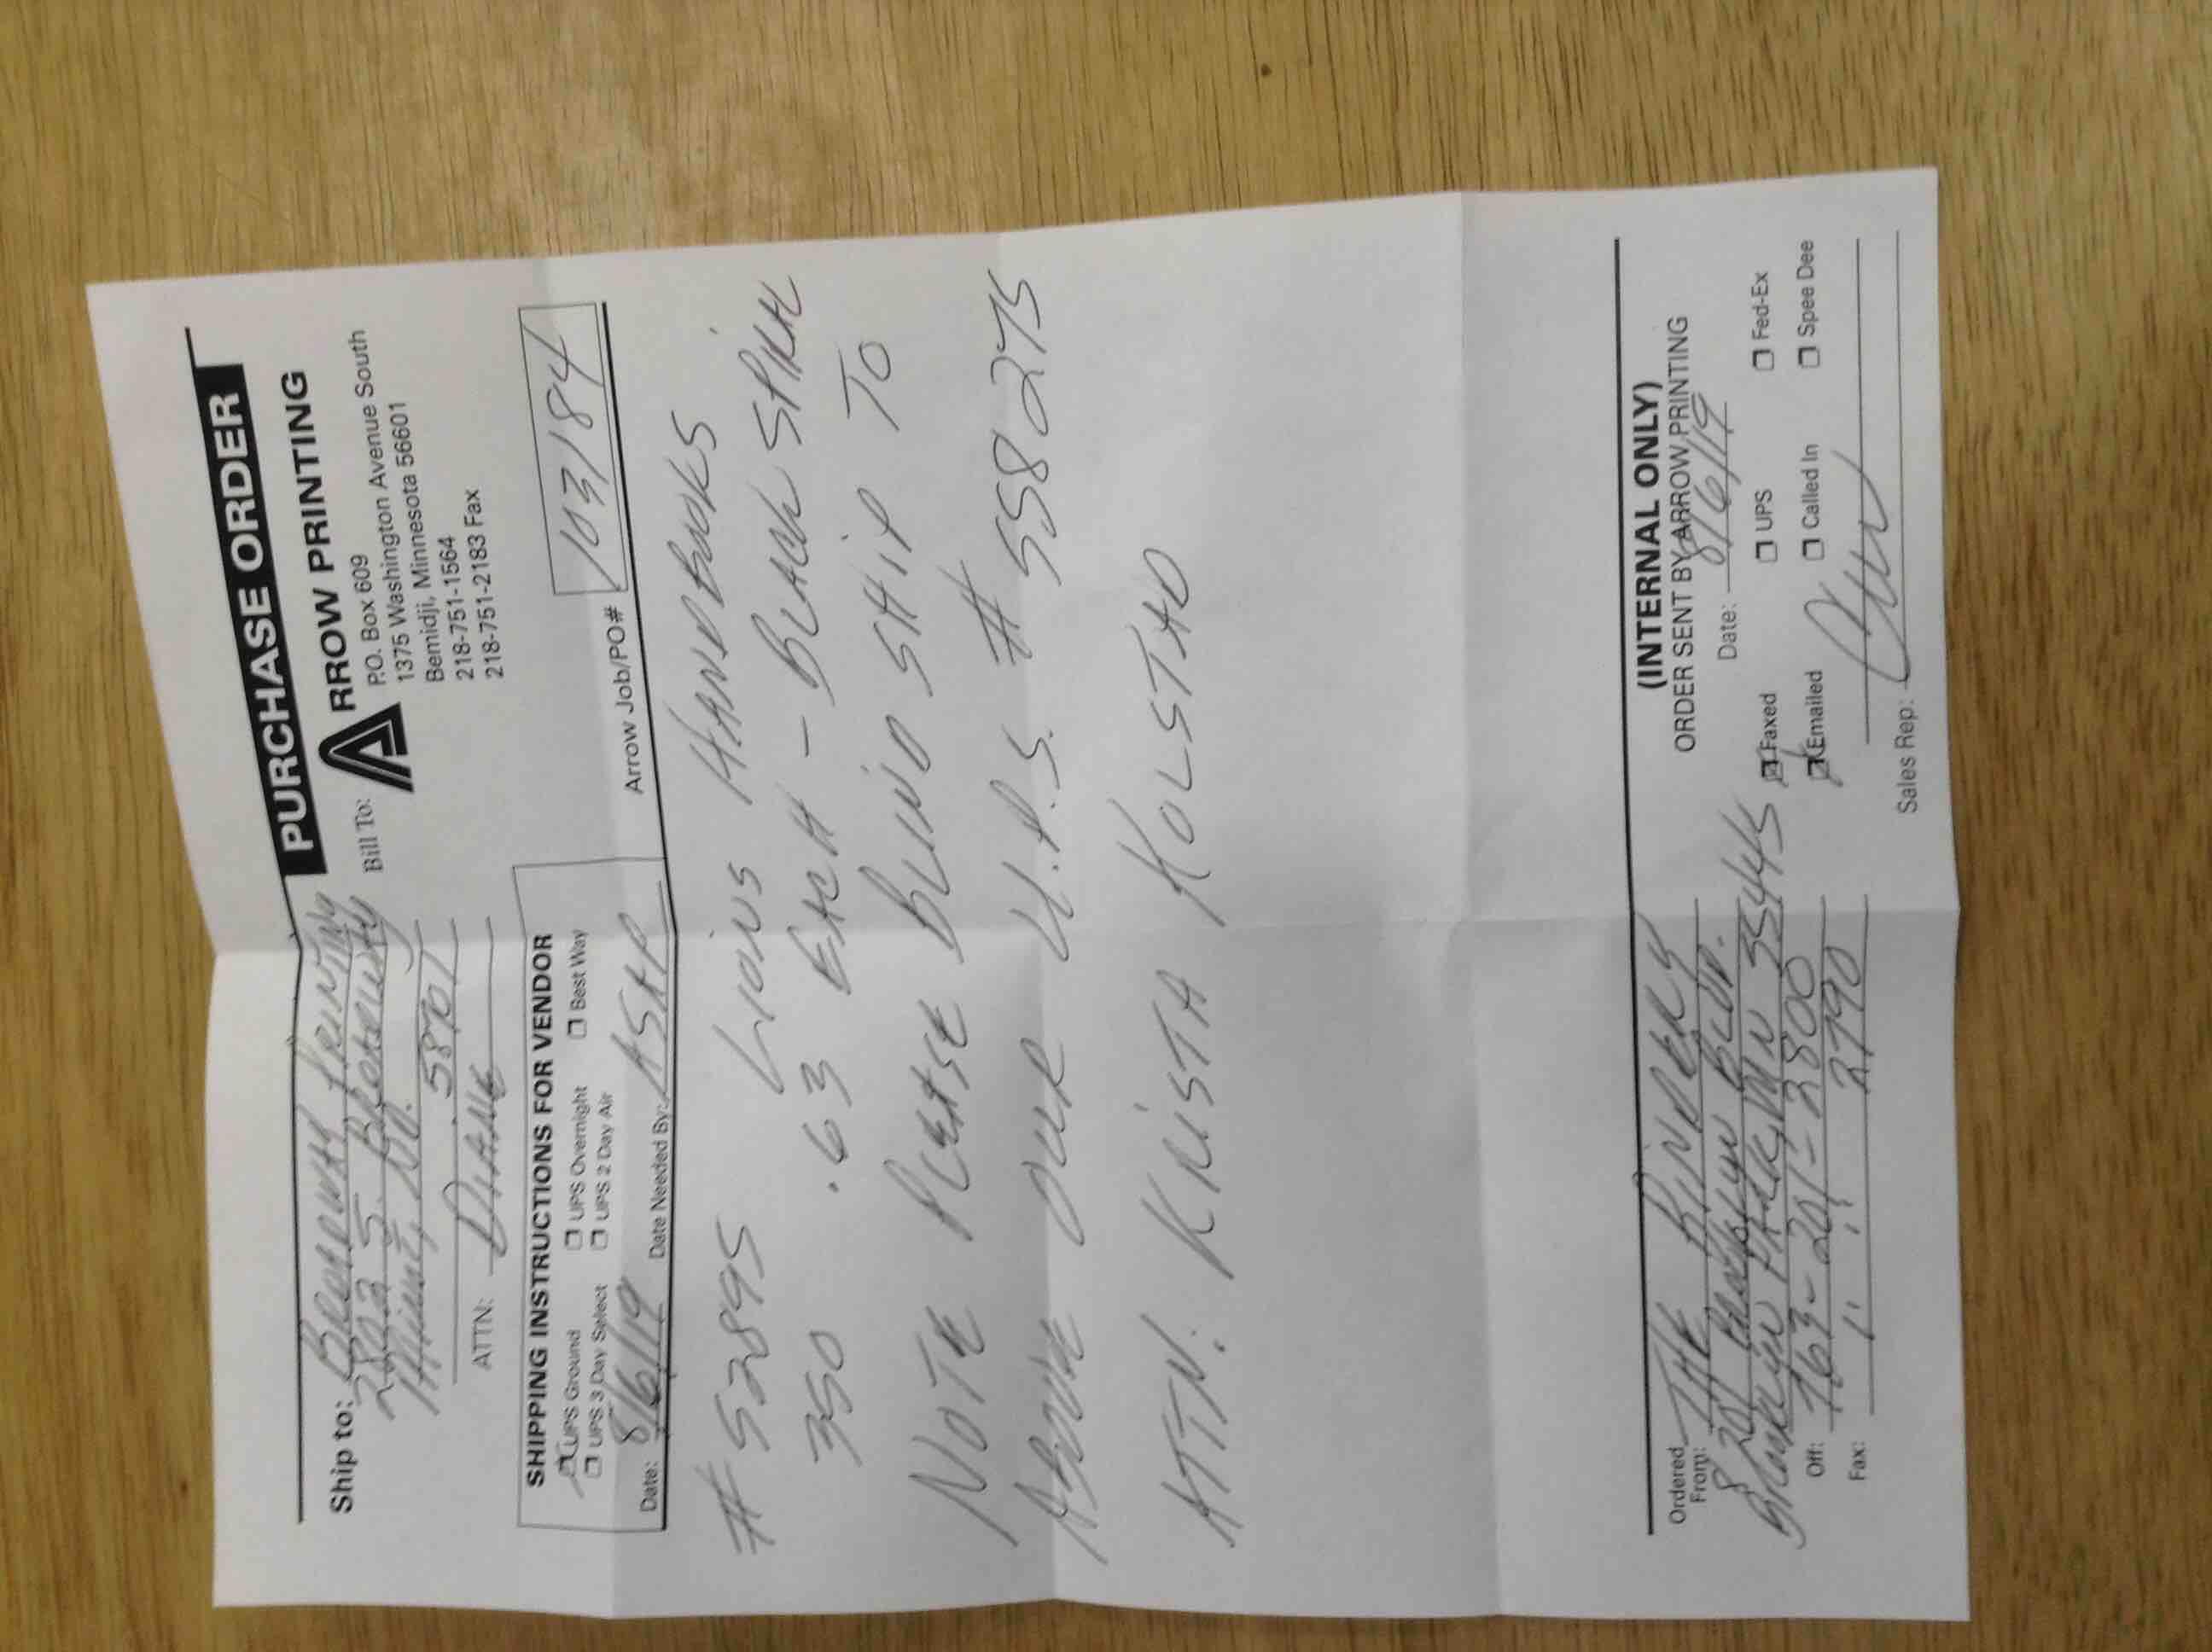 PURCHASE ORDER
Ship to: Broadway Printing
2822 S. Broadway
Minot, ND.
58701
ATTN: DIANE
Bill To: ARROW PRINTING
P.O. Box 609
1375 Washington Avenue South
Bemidji, Minnesota 56601
218-751-1564
218-751-2183 Fax
SHIPPING INSTRUCTIONS FOR VENDOR
UPS Ground ☐ UPS Overnight ☐ Best Way
☐ UPS 3 Day Select ☐ UPS 2 Day Air
Date: 8/6/19 Date Needed By: ASAP
Arrow Job/PO# 103184
# 52895 LIONS HANDBOOKS
350 .63 EACH - BLACK SPIRAL
NOTE PLEASE BLIND SHIP TO
ABOVE OUR U.P.S. # 558275
ATTN: KRISTA KOLSTAD
(INTERNAL ONLY)
ORDER SENT BY ARROW PRINTING
Ordered From: THE BINDERY
8201 Brooklyn BLVD.
Brooklyn PARK, MN 55445
Off: 763-201-2800
Fax: " " 2790
Date: 8/6/19
☑ Faxed ☐ UPS ☐ Fed-Ex
☑ Emailed ☐ Called In ☐ Spee Dee
Sales Rep: